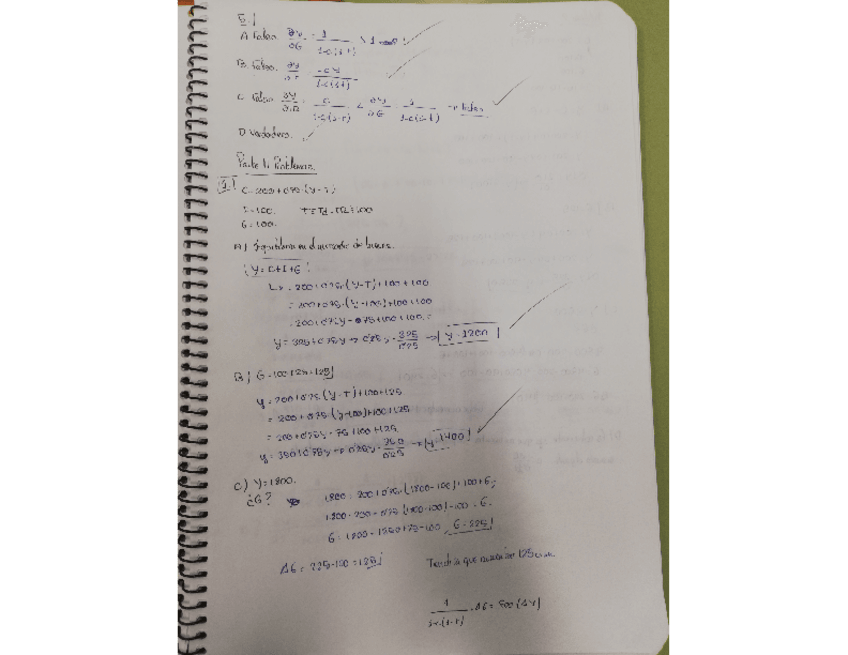 5.1
A Falso. ∂Y/∂G = 1/1-c(1-t) > 1
B. Falso. ∂Y/∂T -cY/1-c(1-t)
C. Falso. ∂Y/∂TR = c/1-c(1-t) < ∂Y/∂G = 1/1-c(1-t) → Falso
D Verdadero.
Parte 1: Problemas
9.1 C = 200 + 0'75·(Y-T)
I = 100.
G = 100.
A) Equilibrio en el mercado de bienes.
Y = C+I+G
↳ 200+0'75·(Y-T)+100+100
= 200+0'75·(Y-100)+100+100
= 200+0'75Y-75+100+100 =
Y = 325+0'75Y → 0'25Y = 325/0'25 → Y = 1300
B) G = 100+25 = 125
Y = 200+0'75·(Y-T)+100+125
= 200+0'75·(Y-100)+100+125
= 200+0'75Y-75+100+125
Y = 350+0'75Y → 0'25Y = 350/0'25 → Y = 1400
C) Y = 1800.
¿G? 1800 = 200+0'75·(1800-100)+100+G;
1800-200-0'75·(1800-100)-100 = G.
G = 1800-1350+75-100 G = 225
ΔG = 225-100 = 125 Tendría que aumentar 125
1/1-c·(1-t) · ΔG = 500 (ΔY)